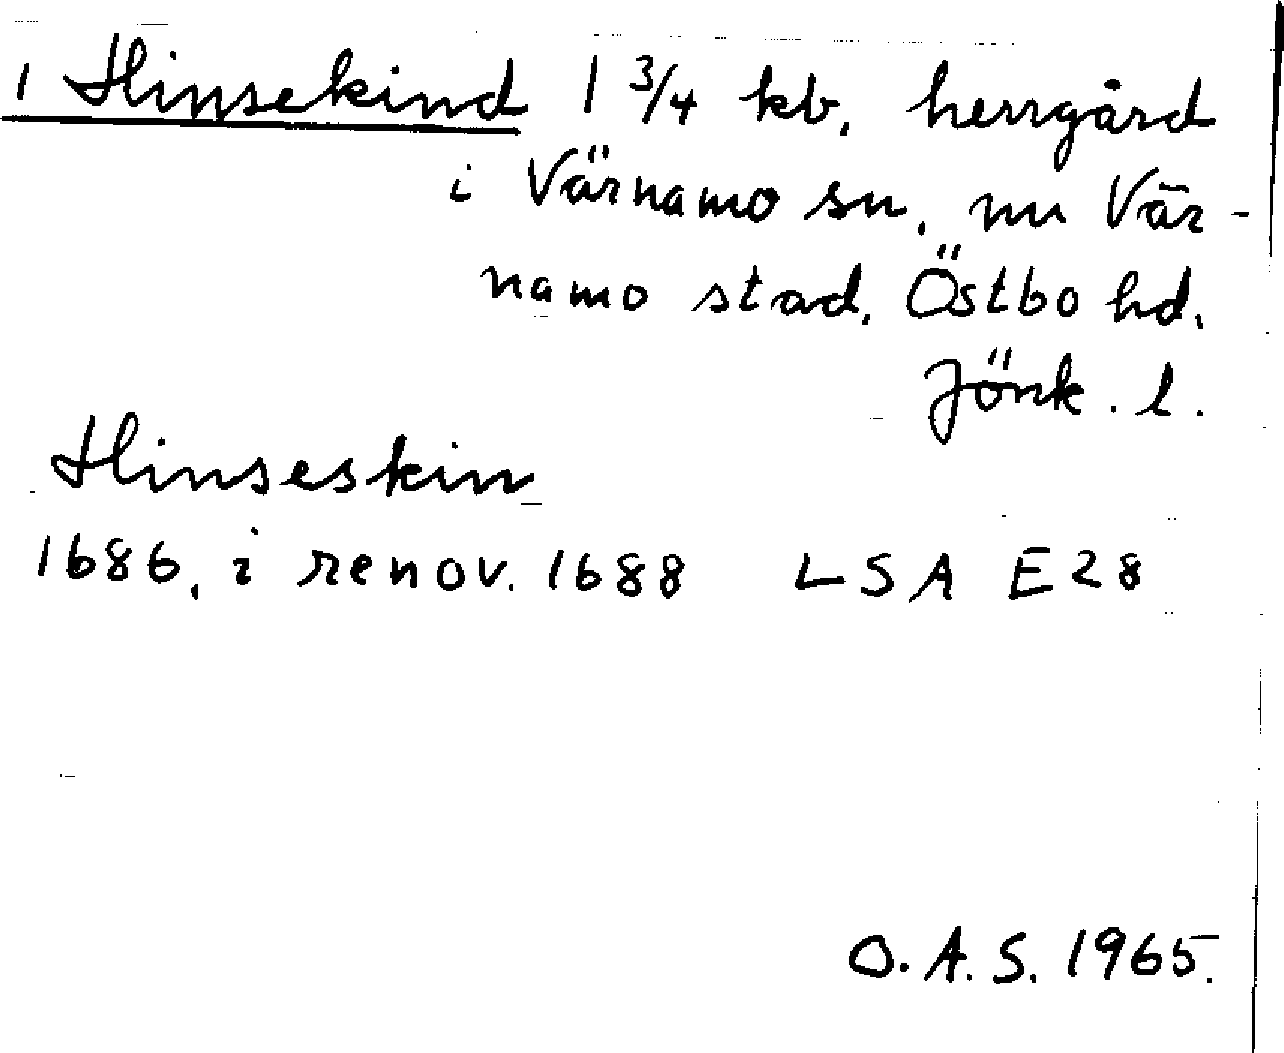 1 Hinsekind 1 3/4 kb, herrgård
i Värnamo sn, nu Vär-
namo stad, Östbo hd,
Jönk. l.
Hinseskin
1686, i renov. 1688 LSA E28
O.A.S. 1965.